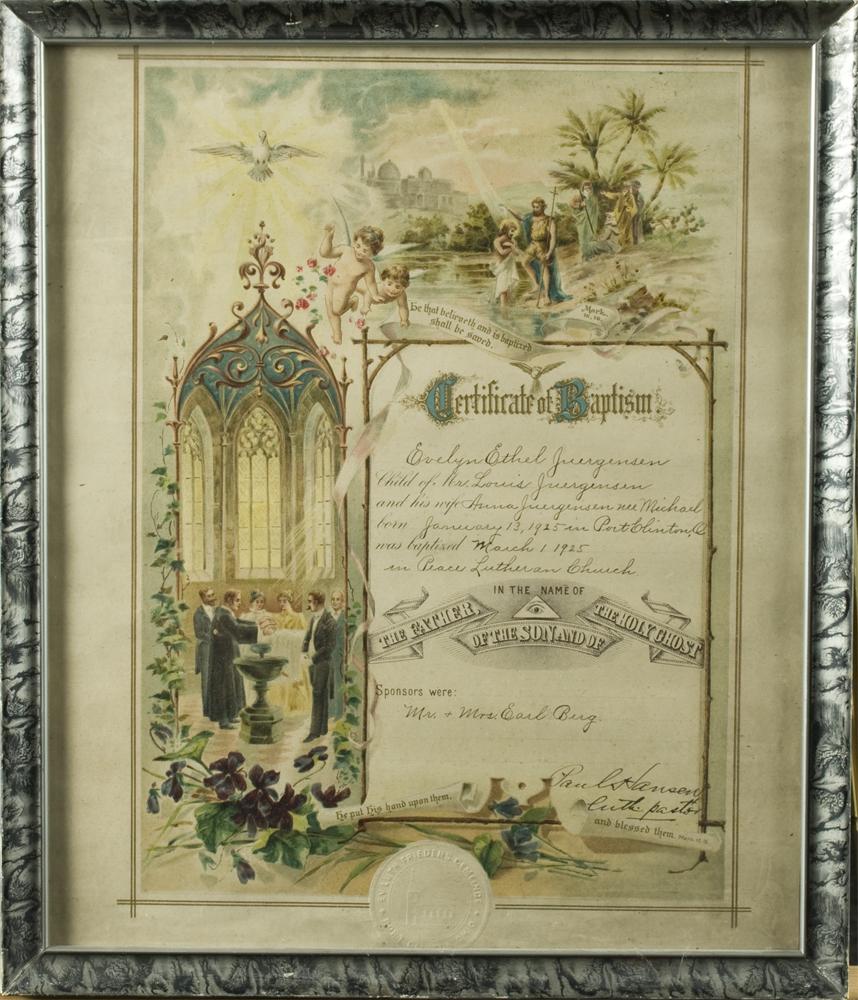 He that believeth and is baptized
shall be saved.
Mark.
16. 16.
Certificate of Baptism
Evelyn Ethel Juergensen
Child of Mr. Louis Juergensen
and his wife Anna Juergensen nee Michael
born January 13, 1925 in Port Clinton, O
was baptized March 1 1925
in Peace Lutheran Church
IN THE NAME OF
THE FATHER,
OF THE SON AND OF
THE HOLY GHOST
Sponsors were:
Mr. + Mrs. Earl Berg.
Paul Hansen
Luth. pastor
He put His hand upon them,
and blessed them.